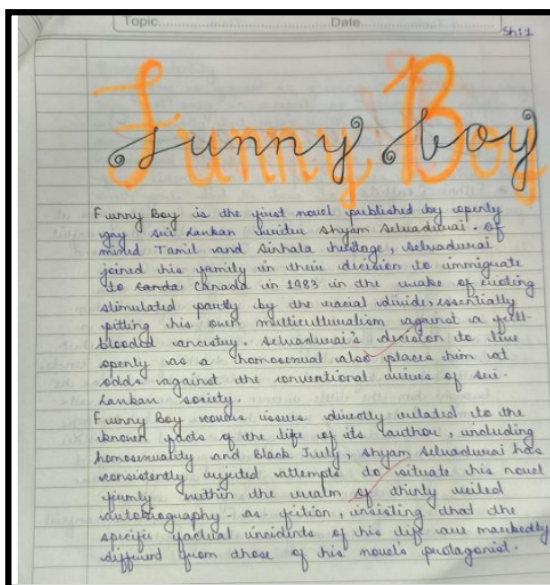 Topic.................. Date..................
Sh:1
Funny Boy
Funny Boy is the first novel published by openly
gay Sri Lankan writer Shyam Selvadurai. Of
mixed Tamil and Sinhala heritage, Selvadurai
joined his family in their decision to immigrate
to Canada in 1983 in the wake of rioting
stimulated partly by the racial divide, essentially
pitting his own multiculturalism against a full-
blooded ancestry. Selvadurai's decision to live
openly as a homosexual also places him at
odds against the conventional mores of Sri-
Lankan society.
Funny Boy issues directly related to the
known facts of the life of its author, including
homosexuality and Black July, Shyam Selvadurai has
consistently rejected attempts to situate his novel
firmly within the realm of thinly veiled
autobiography - as fiction, insisting that the
specific factual incidents of his life are markedly
different from those of his novel's protagonist.